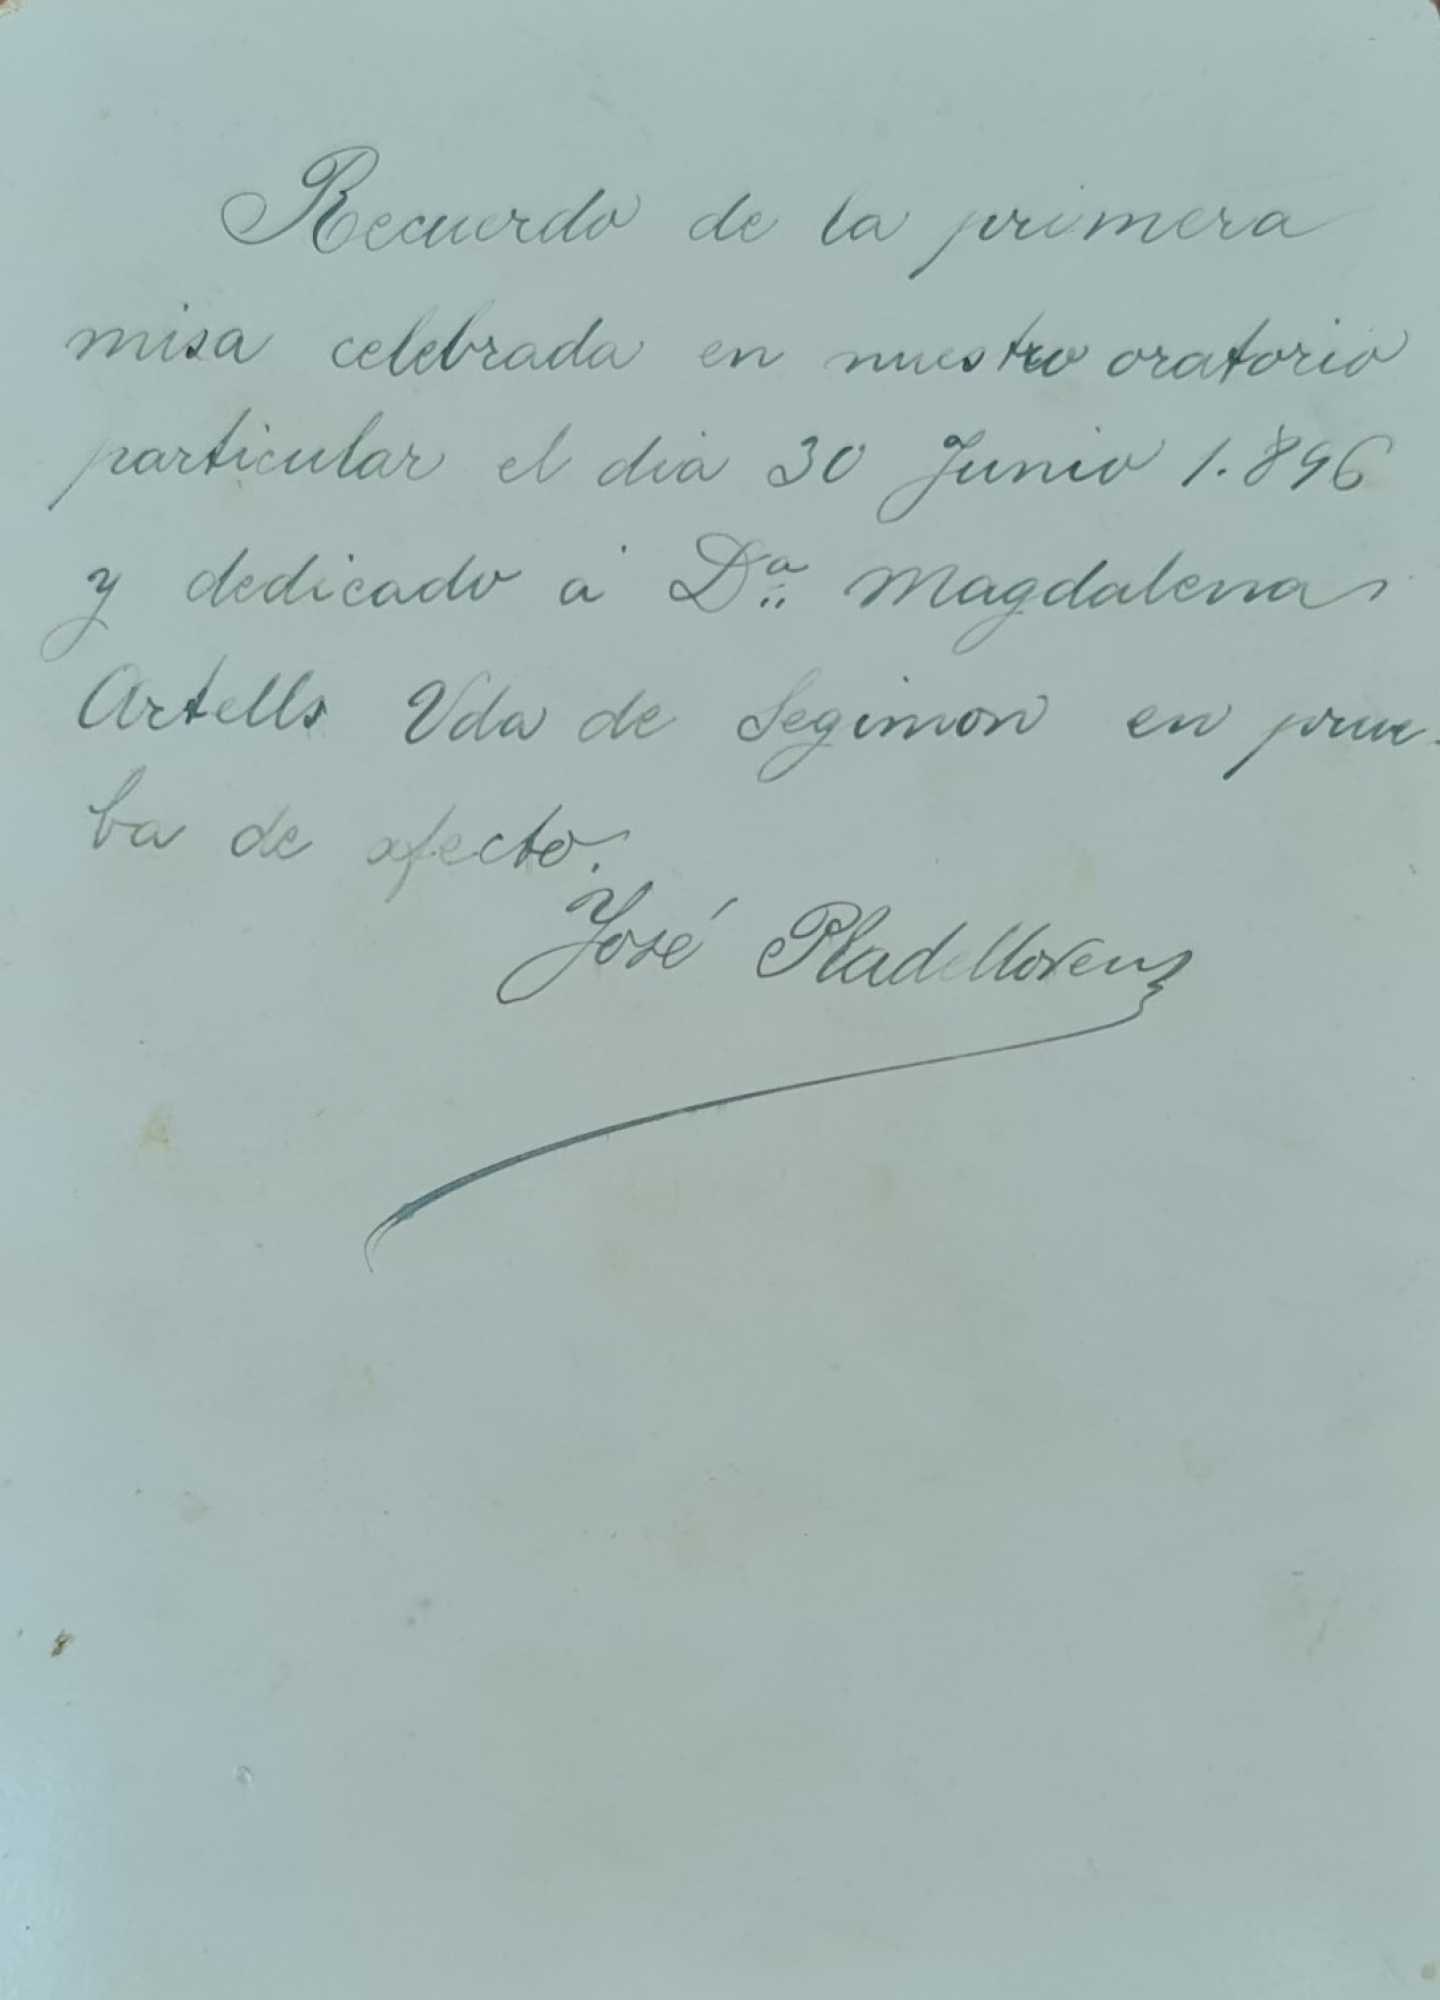 Recuerdo de la primera
misa celebrada en nuestro oratorio
particular el dia 30 Junio 1.896
y dedicado á Dª Magdalena
Artells Vda de Segimon en prue-
ba de afecto.
José Pladellorens